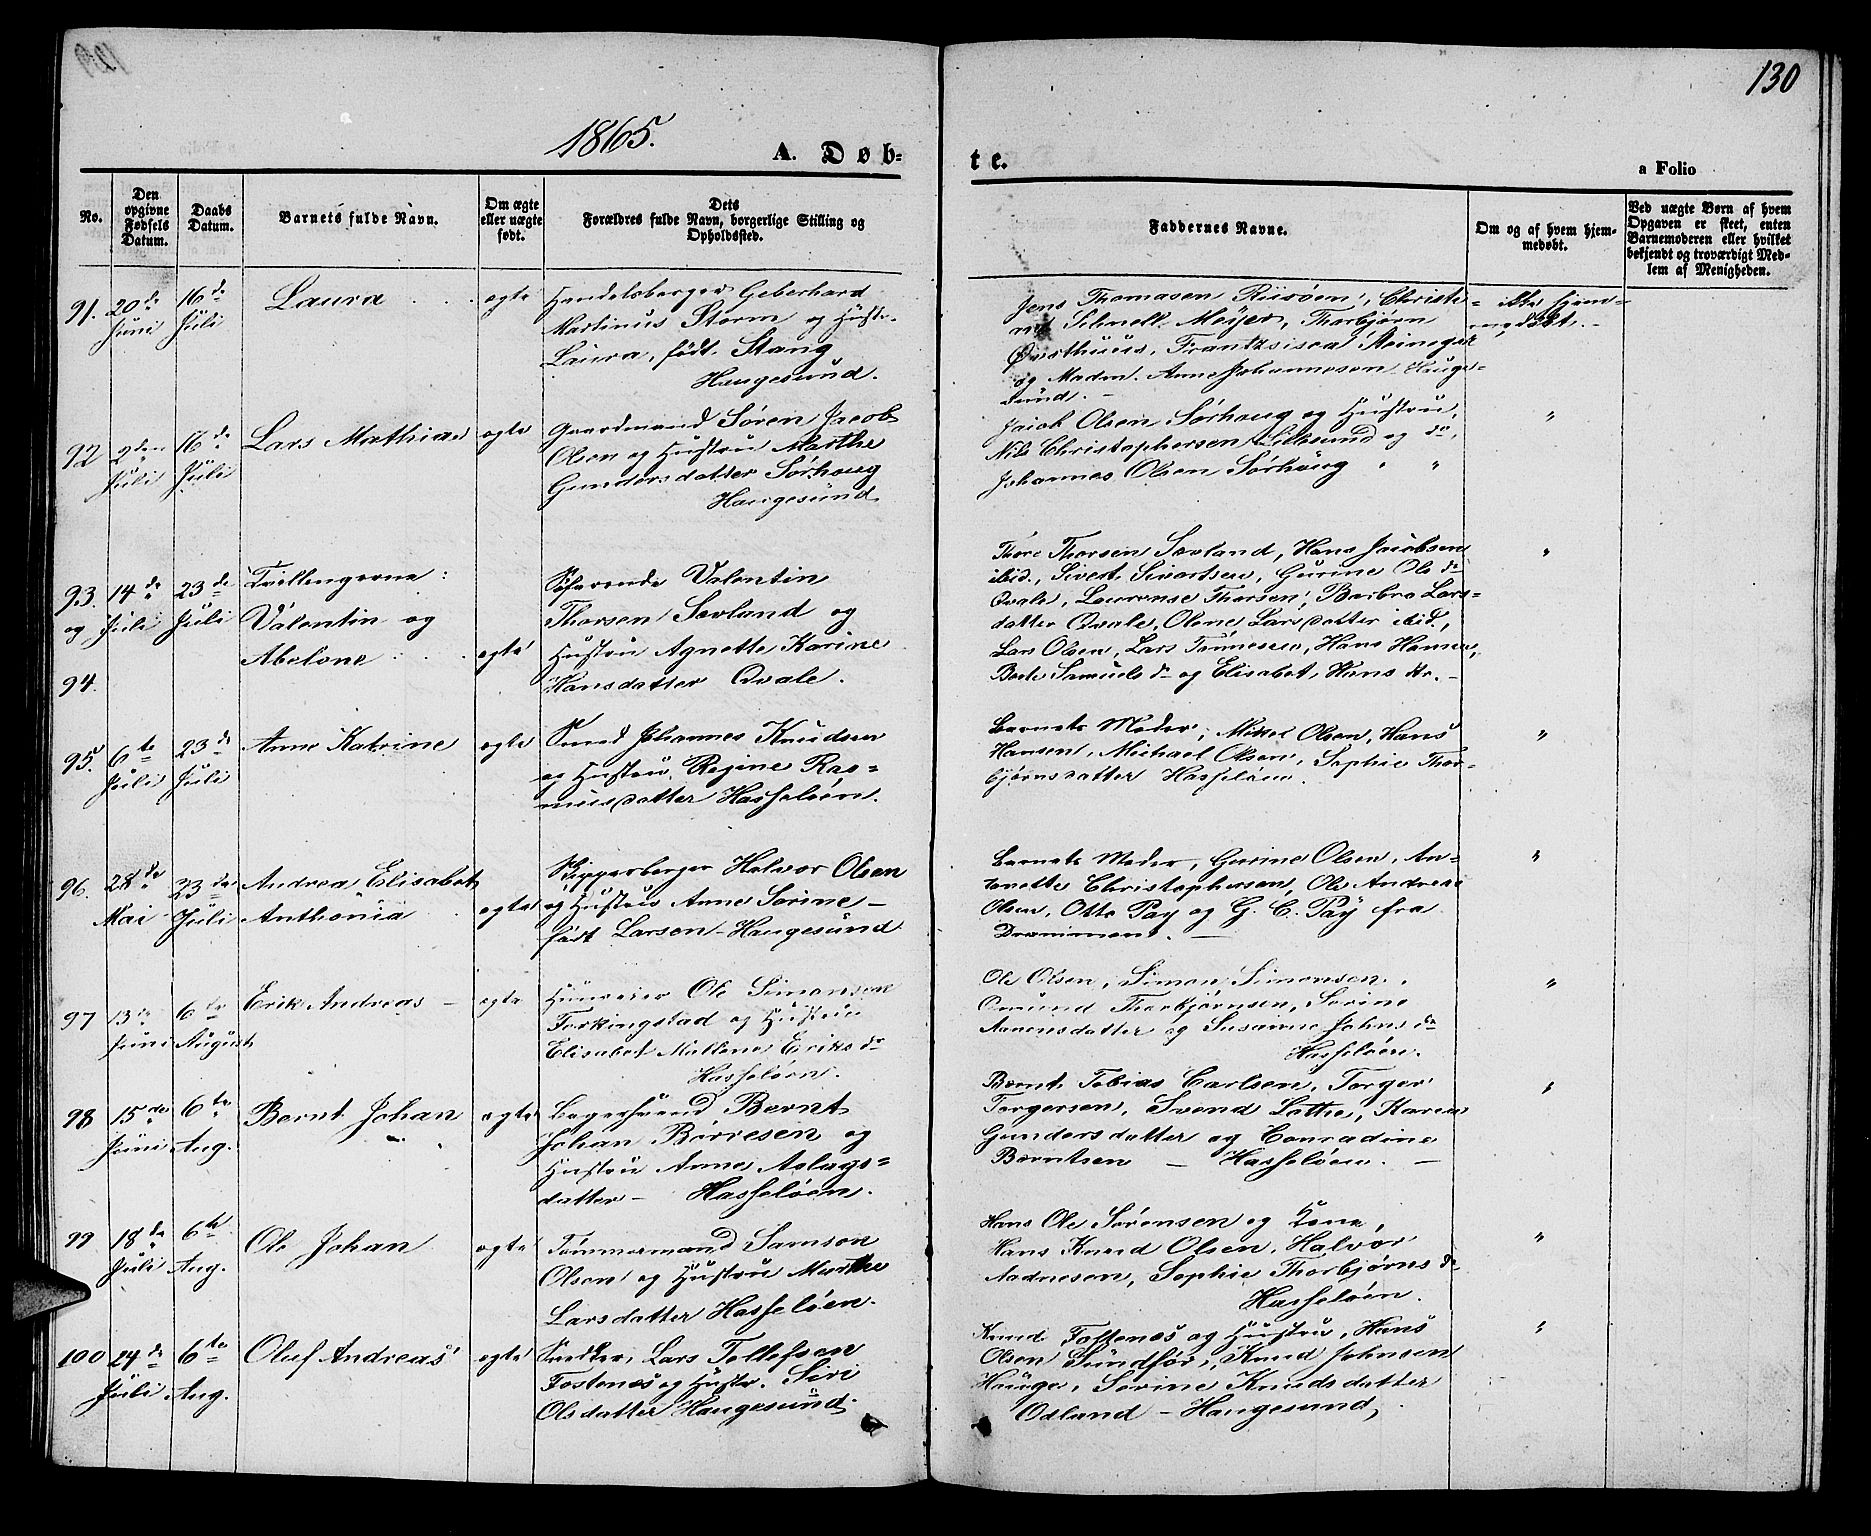 130
1865.
A. Døb-
te.
a Folio
No.
Den opgivne Fødsels Datum.
Daabs Datum.
Barnets fulde Navn.
Om ægte eller uægte født.
Dets Forældres fulde Navn, borgerlige Stilling og Opholdssted.
Faddernes Navne.
Om og af hvem hjemmedøbt.
Ved uægte Børn af hvem Opgaven er skeet, enten Barnemoderen eller hvilket bekjendt og troværdigt Medlem af Menigheden.
91. 20de Juni 16de Juli Laura ægte
Handelsborger Geberhard
Martinus Storm og Hustr.
Laura, født Stang
Haugesund.
Jens Thomasen Riisøen, Christi-
ne Schnell Meÿer, Thorbjørn
Østhuus, Frantzisca Steinegar
og Madm. Anne Johannesen Hauge-
sund. -
ikke hjem-
medøbt. -
92 2den Juli 16de Juli Lars Mathias ægte
Gaardmand Søren Jacob
Olsen og Hustru Marthe
Gundersdatter Sørhaug
Haugesund
Jacob Olsen Sørhaug og Hustru,
Nils Christophersen Lillesund og do,
Johannes Olsen Sørhaug " "
"
93. og 94. 14de Juli 23de Juli Tvillingerne:
Valentin og
Abelone ægte
Søfarende Valentin
Thorsen Sævland og
Hustru Agnette Karine
Hansdatter Qvale.
Thore Thorsen Sævland, Hans Jacobsen
ibid., Sivert Sivertsen, Gurine Ols dr
Qvale, Laurense Thorsen, Barbro Lars-
datter Qvale, Olene Larsdatter ibid.,
Lars Olsen, Lars Tønnesen, Hans Hansen,
Berte Samuels dr og Elisabet Hans dr. -
"
95. 6te Juli 23de Juli Anne Katrine ægte
Smed Johannes Knudsen
og Hustru Regine Ras-
musdatter Hasseløen.
Barnets Moder, Mikal Olsen, Hans
Hansen, Michael Olsen, Sophie Thor-
bjørnsdatter Hasseløen.
"
96. 28de Mai 23de Juli Andrea Elisabet
Anthonia ægte
Skipperborger Halvor Olsen
og Hustru Anne Sørine -
født Larsen - Haugesund
Barnets Moder, Gurine Olsen, An-
tonette Christophersen, Ole Andreas
Olsen, Otto Paÿ og G. C. Paÿ fra
"
97 13de Juni 6te August Erik Andreas - ægte
Huuseier Ole Simonsen
Ferkingstad og Hustru
Elisabet Mallene Eriks dr
Hasseløen.
Ole Olsen, Simon Simonsen,
Omund Thorbjørnsen, Sørine
Aamundsdatter og Susanne Johns dr
Hasseløen.
"
98 15de Juni 6te Aug. Bernt Johan ægte
Bagersvend Bernt
Johan Børresen og
Hustru Anne Aslags-
datter - Hasseløen.
Bernt Tobias Carlsen, Torger
Torgersen, Svend Lothe, Karen
Gundersdatter og Conradine
Berntsen - Hasseløen. -
"
99 18de Juli 6te Aug. Ole Johan ægte
Tømmermand Samson
Olsen og Hustru Marthe
Larsdatter Hasseløen.
Hans Ole Sørensen og Kone,
Hans Knud Olsen, Halvor
Aadnesen, Sophie Thorbjørns dr
Hasseløen.
"
100 24de Juli 6te Aug. Oluf Andreas ægte
Snedker Lars Tollefsen
Fostenæs og Hustr. Siri
Olsdatter Haugesund.
Knud Fostenæs og Hustru, Hans
Olsen Sundfør, Knud Johnsen
Hauge, Sørine Knudsdatter
Odland - Haugesund
"